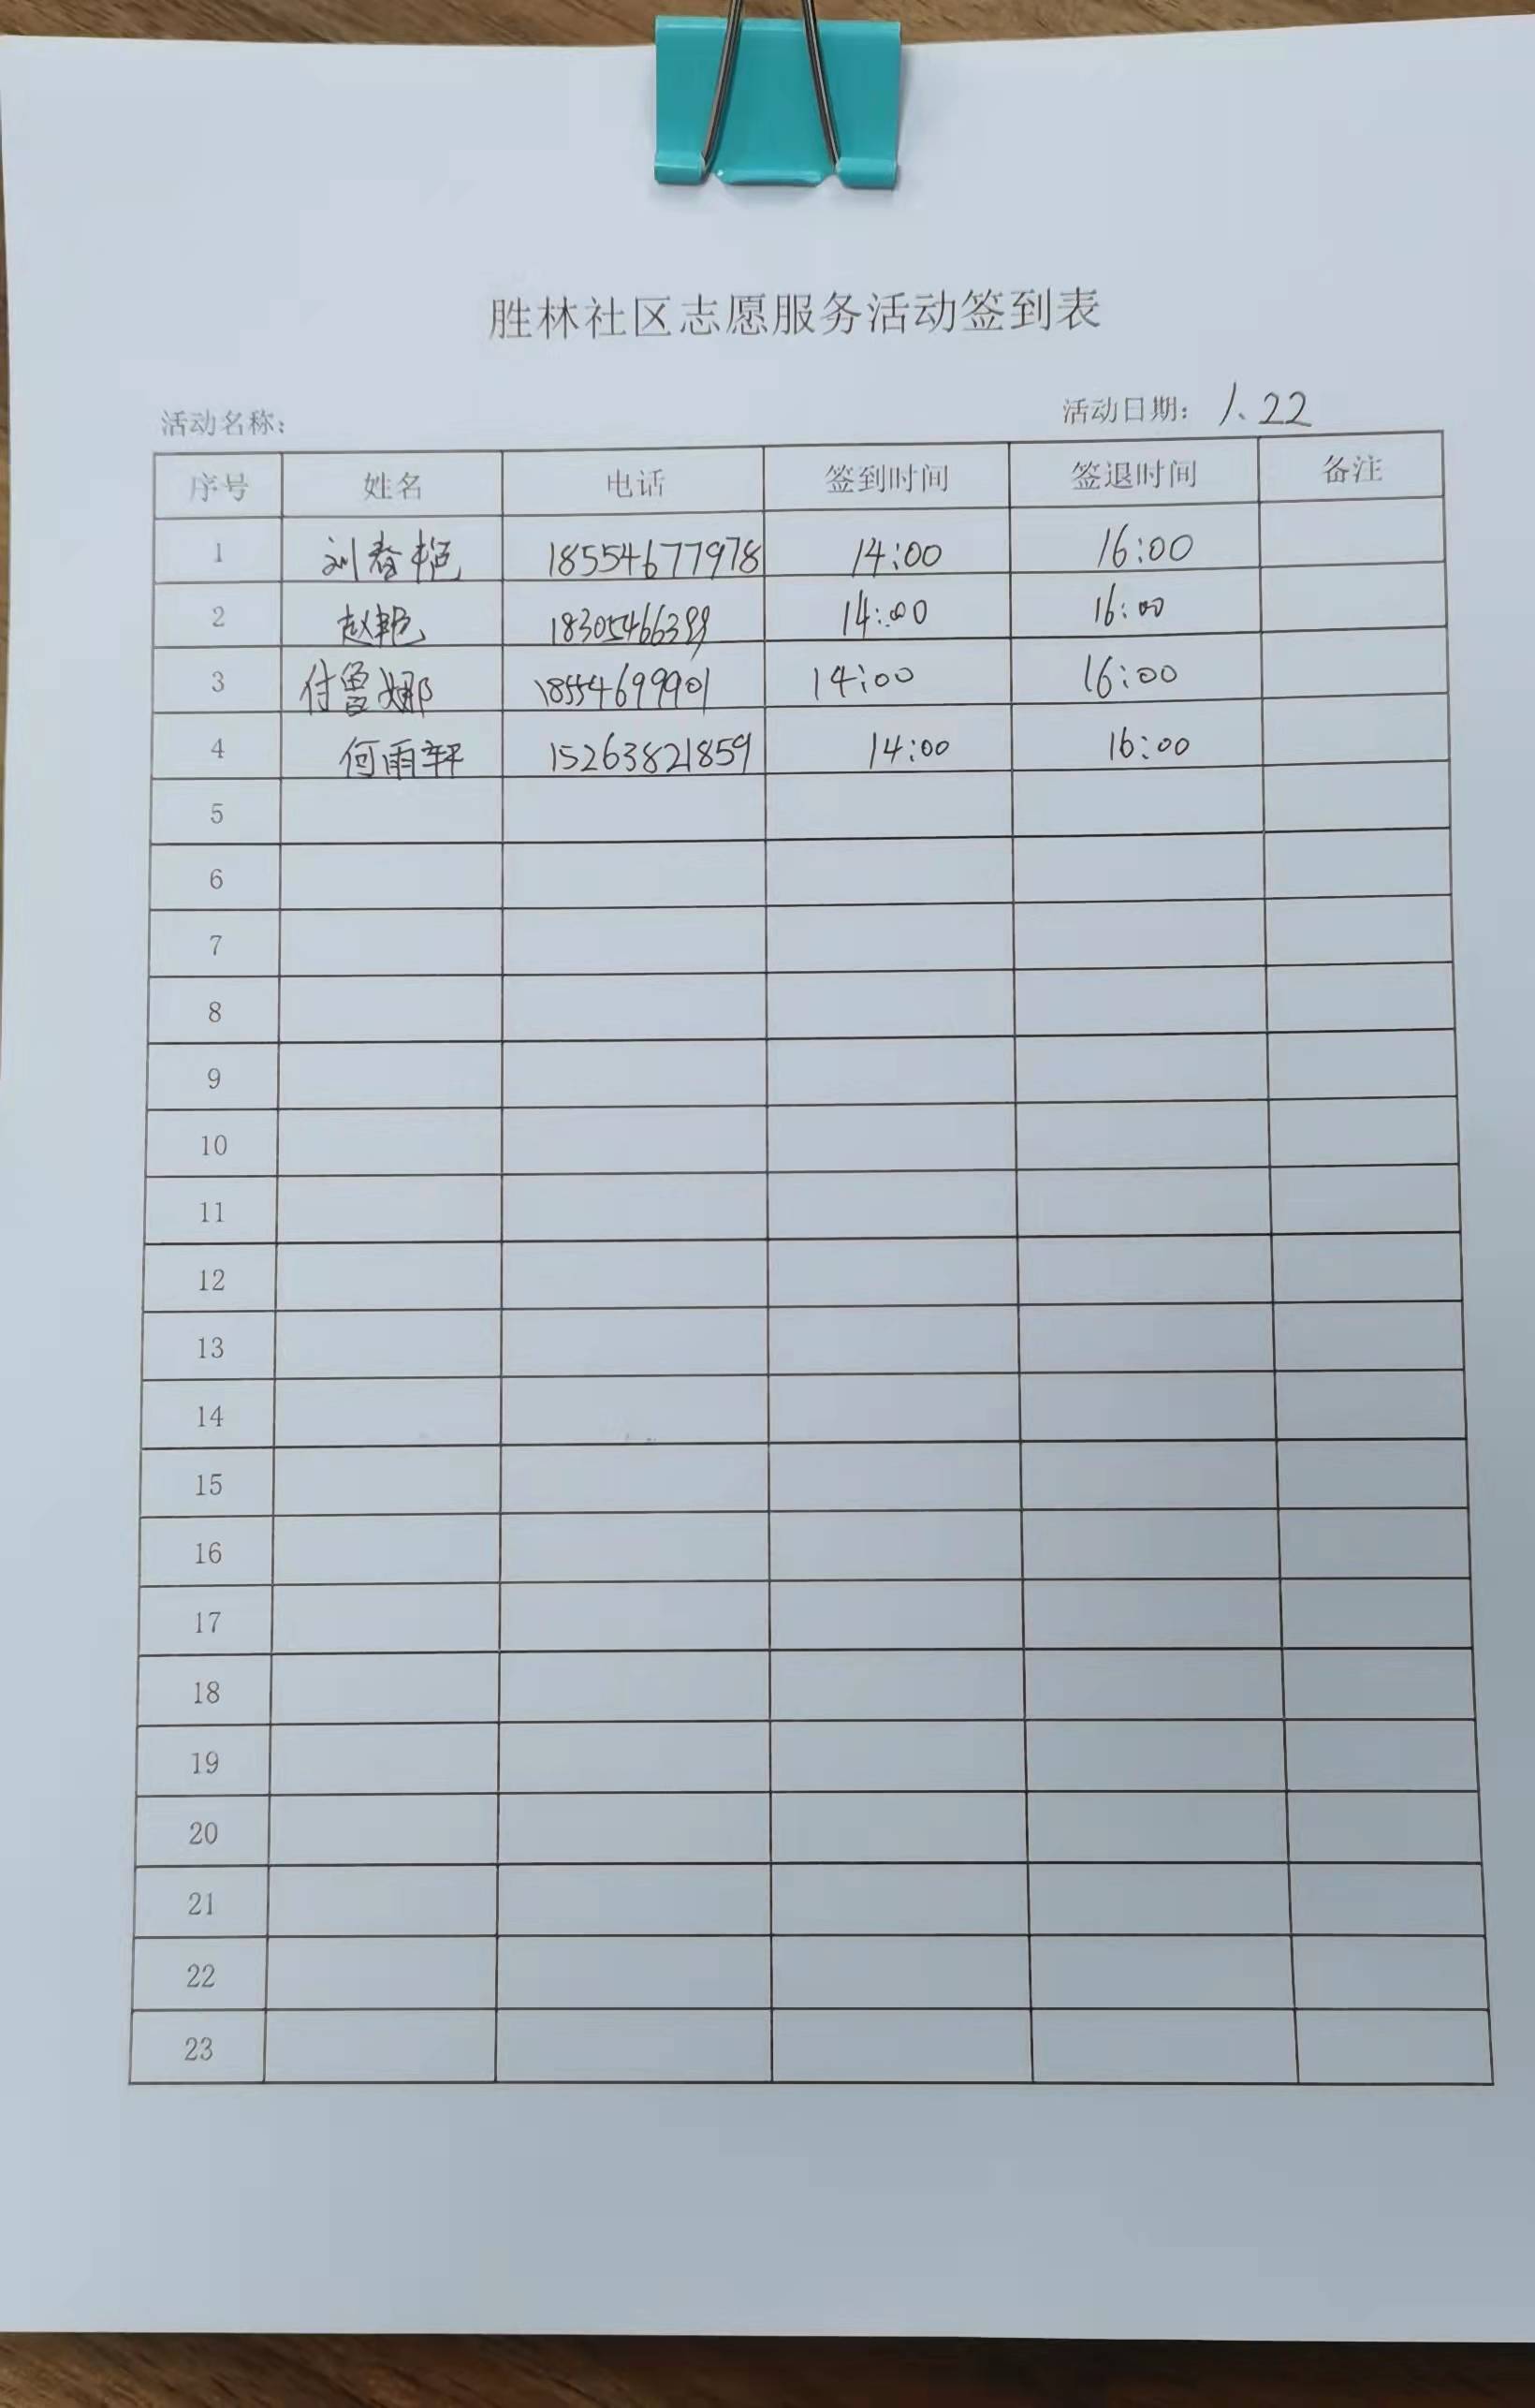 胜林社区志愿服务活动签到表
活动名称: 活动日期: 1、22
序号 姓名 电话 签到时间 签退时间 备注
1 刘春艳 18554677978 14:00 16:00
2 赵艳 14:00 16:00
3 付鲁娜 18554699901 14:00 16:00
4 何雨轩 15263821859 14:00 16:00
5
6
7
8
9
10
11
12
13
14
15
16
17
18
19
20
21
22
23